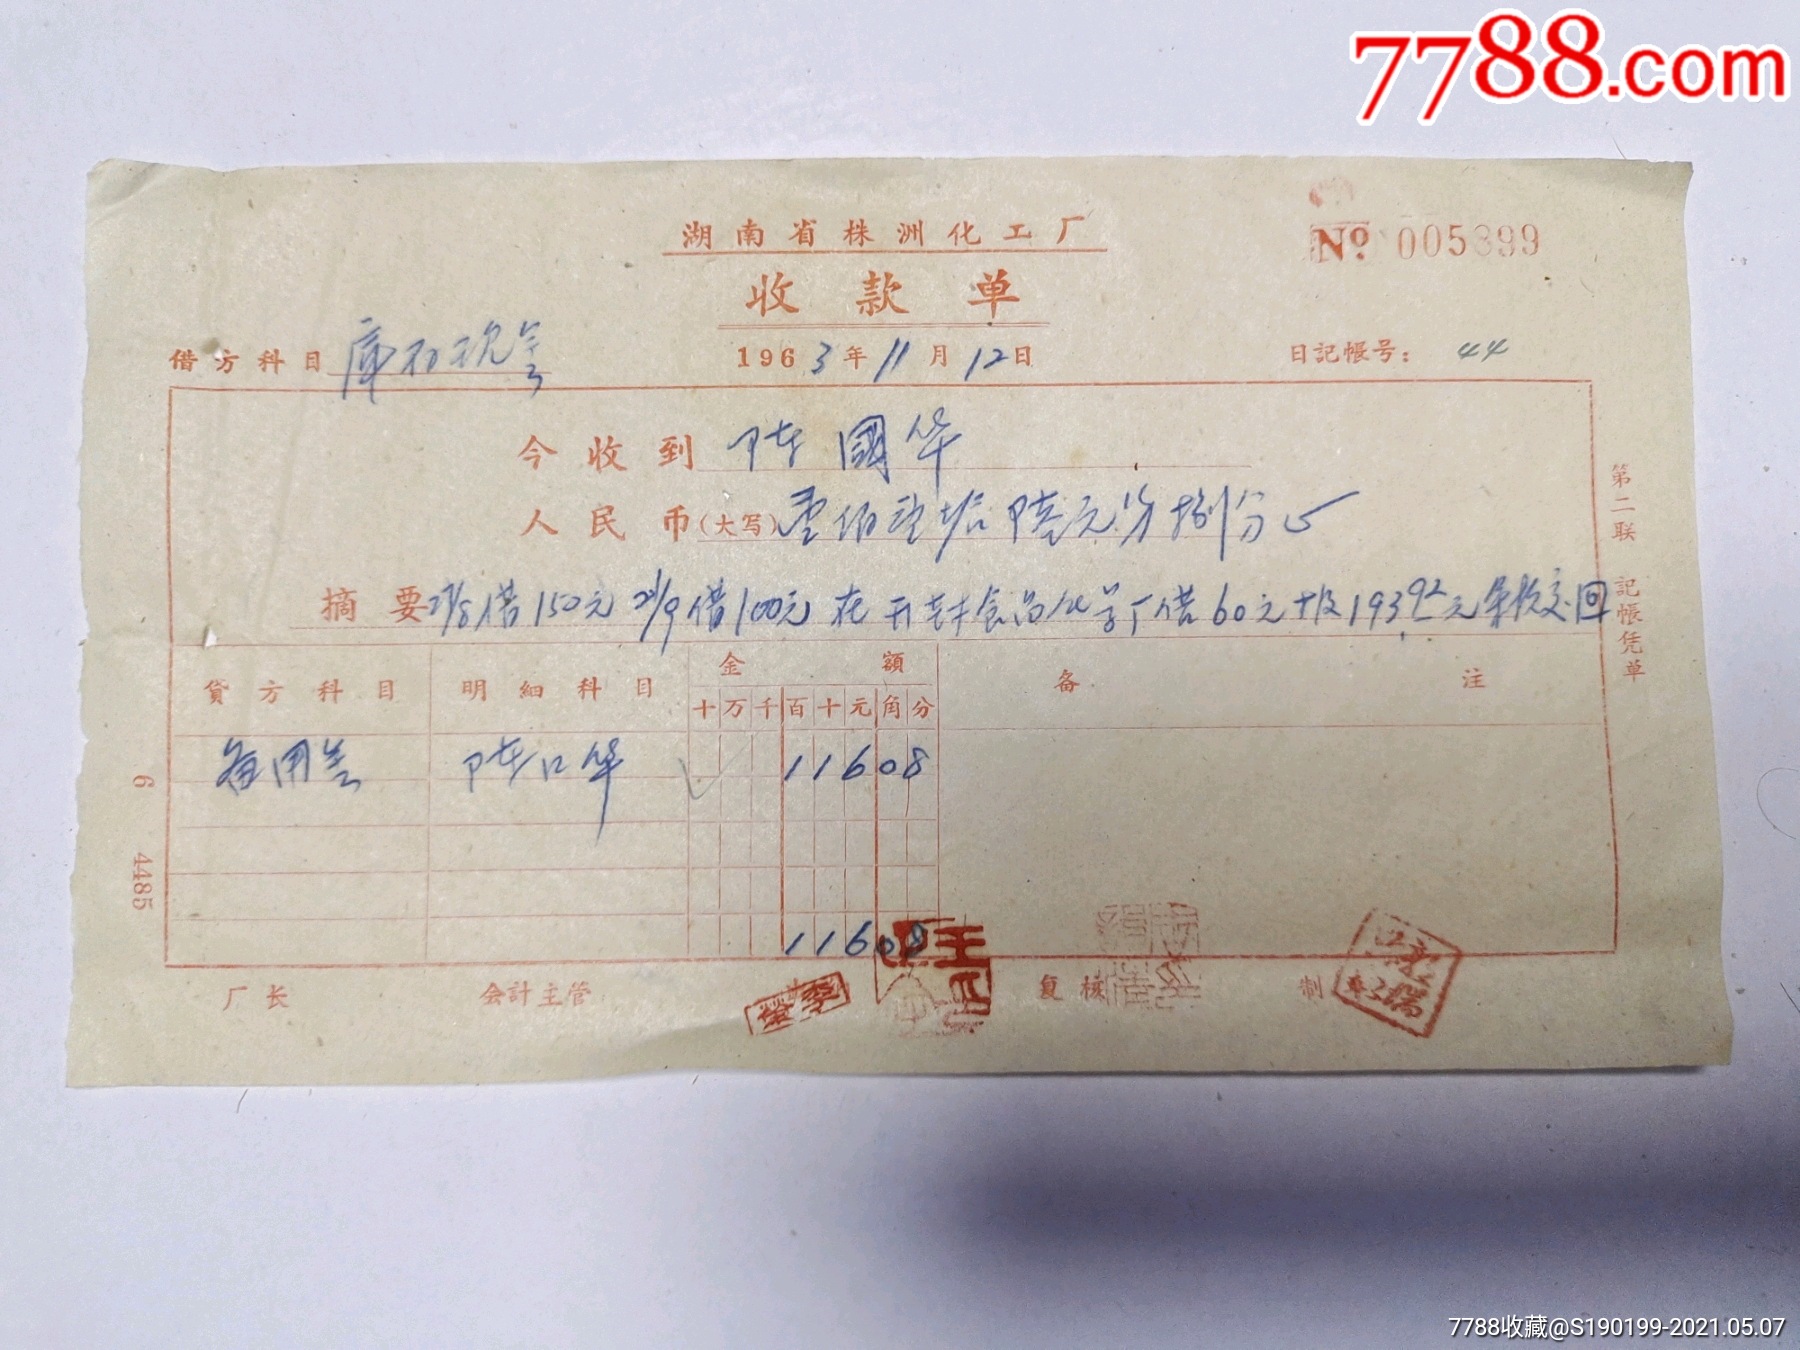 7788.com
湖南省株洲化工厂
№ 005899
收款单
借方科目 库存现金
1963年11月12日
日记帐号: 44
今收到 陆國华
人民币(大写) 壹佰壹拾陆元另捌分
摘要 借150元 21/9借100元 在开封食品化学厂借60元 报193.92元 余款交回
第二联 記帳凭单
貸方科目 明細科目 金額 备注
十万千百十元角分
备用金 陆口华 11608
11608
6 4485
厂长 会計主管 复核 制
7788收藏@S190199-2021.05.07